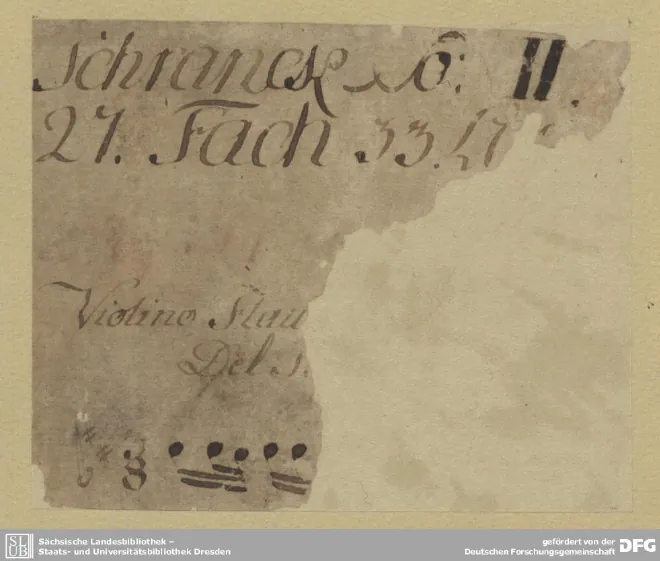 Schranck No: II.
27. Fach 33.
Violino Flau
Del S.
SLUB
Sächsische Landesbibliothek –
Staats- und Universitätsbibliothek Dresden
gefördert von der
Deutschen Forschungsgemeinschaft
DFG